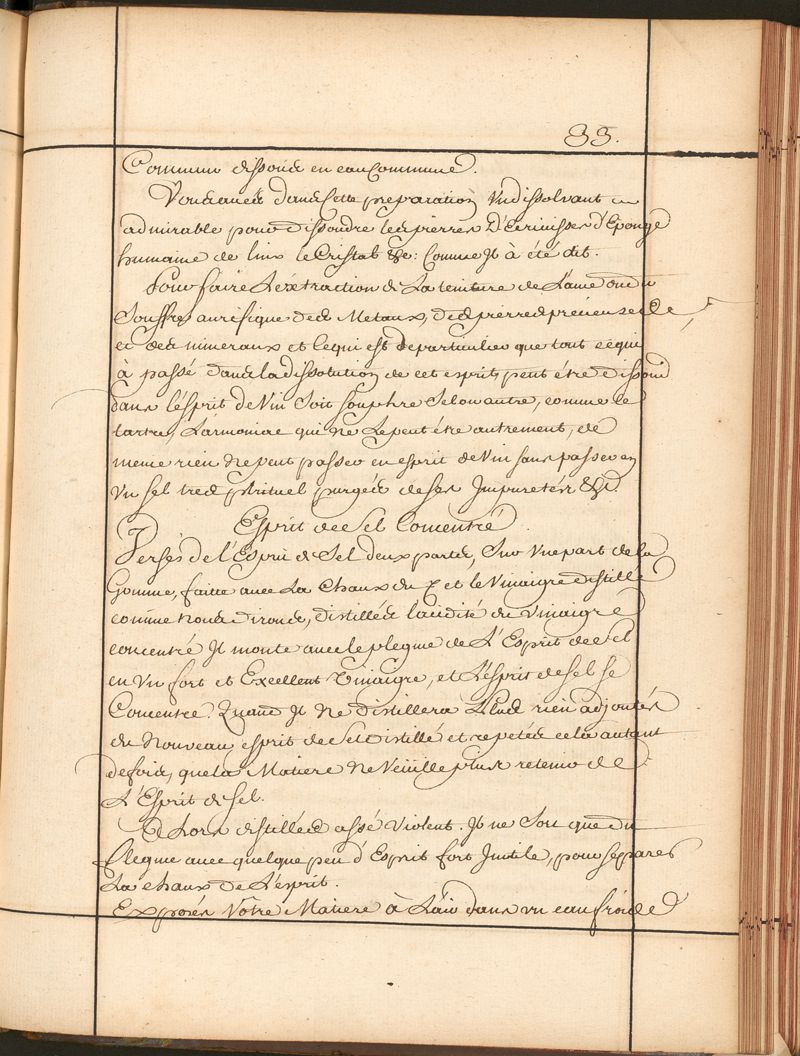 33.
Commun dissoud en eau Commune.
Vous aues dans Cette preparation Vn dissolvant
admirable pour dissoudre les pierres D'Ecrivisses d'Eponge
humaine de linx le Cristal &c: Comme Jl à été dit.
Pour faire L'extraction de La teinture de L'ame ou du
Souffre aurifique des Metaux, des pierres precieuses
et des mineraux et ce qui est de particulier que tout ce qui
à passé dans la dissolution de cet esprit, peut étre dissoud
dans l'ésprit de Vin Soit souphre Selon autre, comme le
tartre, L'armoniac qui ne Le peut étre autrement, de
meme rien ne peut passer en esprit de Vin sans passer en
Vn sel tres spirituel purgée de ses Jmpuretés &c.
Esprit de Sel Concentré
Versés de l'Esprit de Sel deux parties, Sur Vne part de la
Gomme, faitte auec La Chaux du et le Vinaigre distillé
comme nous dirons, distillés l'acidité du Vinaigre
concentré Jl monte auec le plegme de L'Esprit de Sel
en Vn fort et Excellent Vinaigre, et L'ésprit de Sel se
Concentre. Quand Jl ne distillera Plus rien adjoutés
du Nouveau esprit de Sel Distillé et repetés cela autant
de fois, que la Matiere ne Veüille plus retenir de
L'Esprit de Sel.
Alors distillés assé Violent. Jl ne Sort que du
flegme auec quelque peu d'Esprit fort Jnutile, pour separer
La chaux de L'esprit.
Exposés Vôtre Matiere à L'air dans vn eau froide